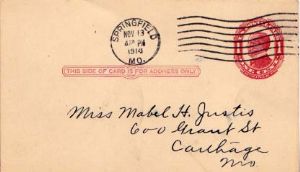 SPRINGFIELD
NOV 13
1914
MO.
THIS SIDE OF CARD IS FOR ADDRESS ONLY
Miss Mabel H. Justis
600 Grant St
Carthage
Mo